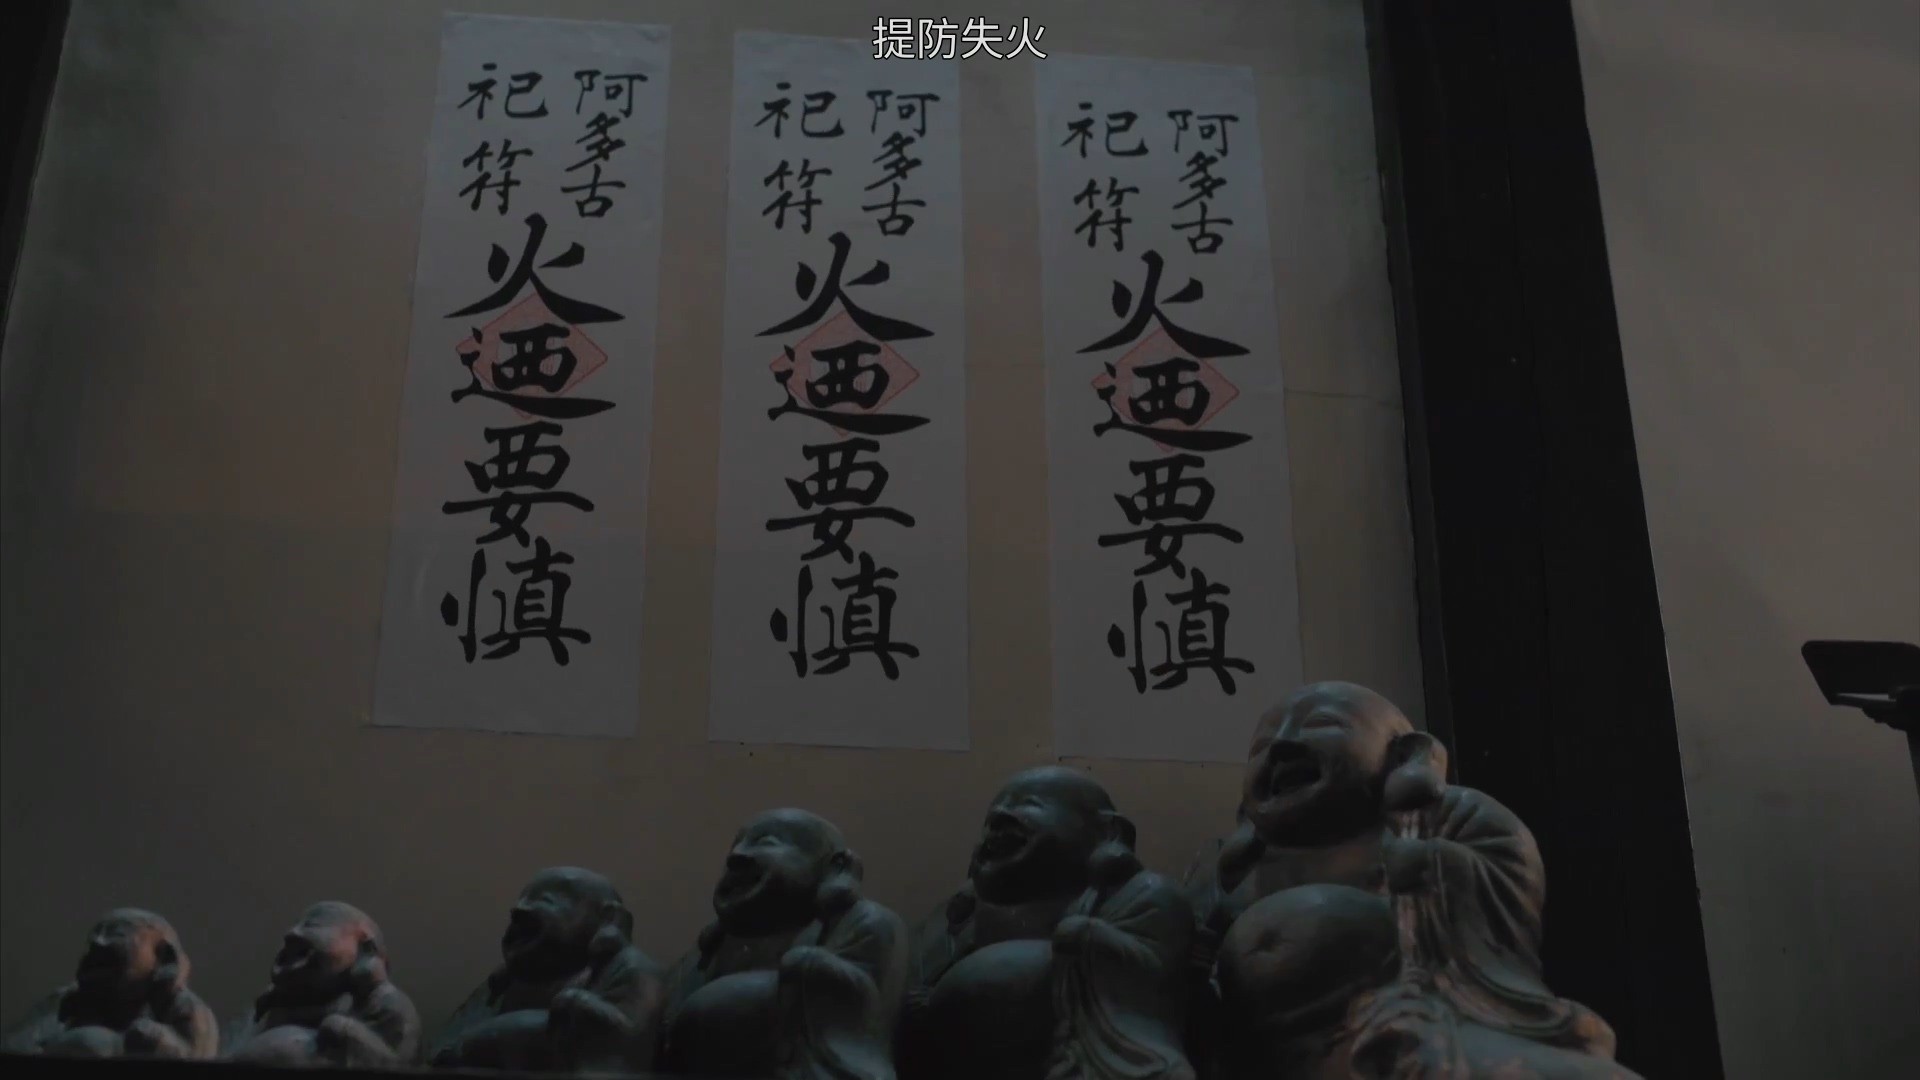 提防失火
阿多古
祀符
火迺要慎
阿多古
祀符
火迺要慎
阿多古
祀符
火迺要慎